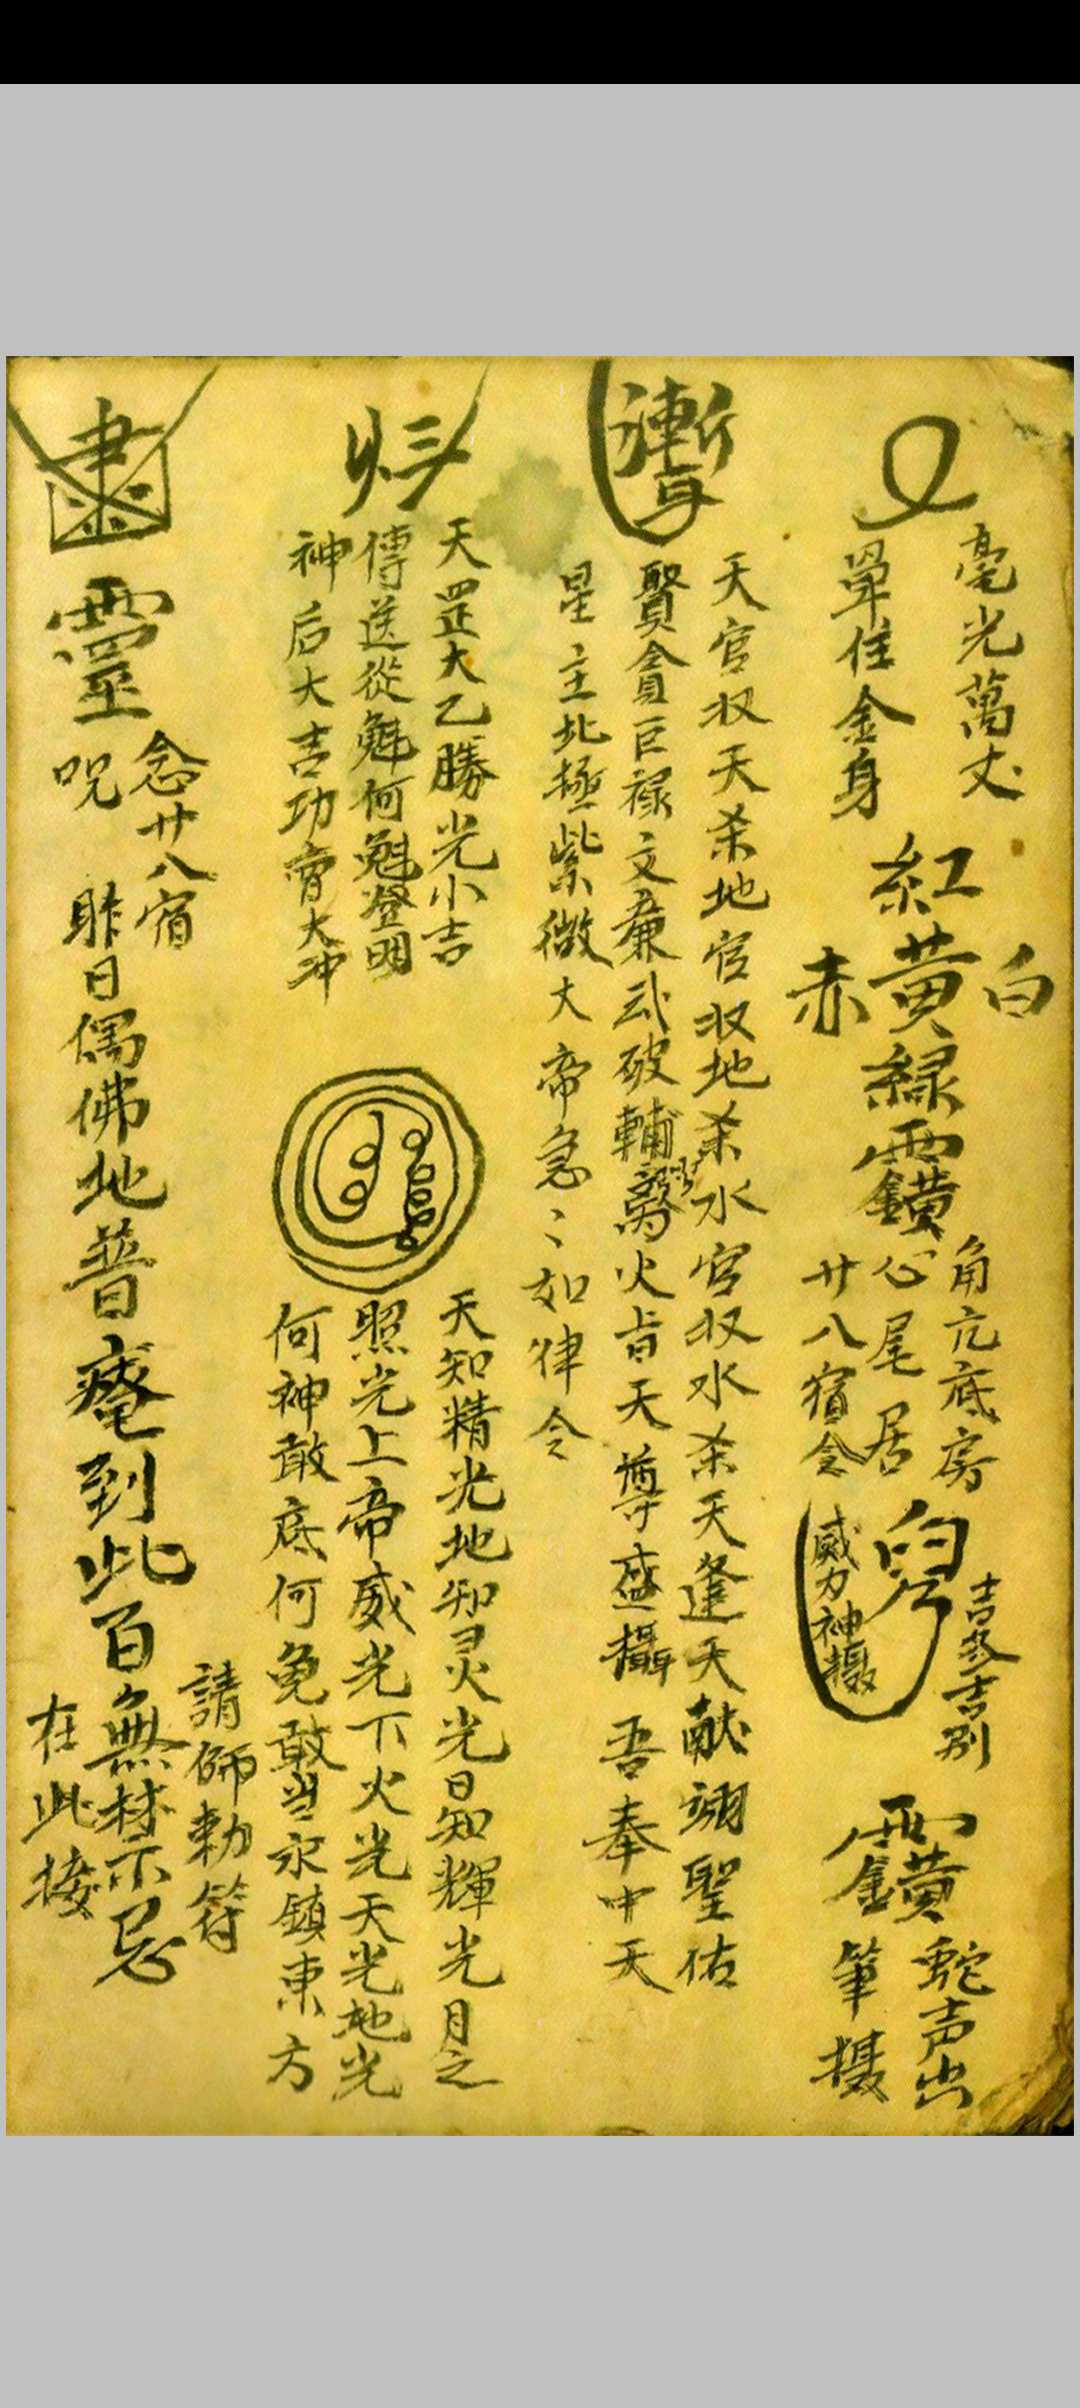 毫光萬丈
單住金身
紅黃綠
白
赤
角亢底房
心尾居
廿八宿念
威力神攝
蛇声出
筆攝
天官収天杀地官収地杀水官収水杀天逢天献翊聖佑
賢貪巨禄文廉武破輔 火 天尊盛攝吾奉中天
星主北極紫微大帝急〻如律令
天罡大乙勝光小吉
傳送從魁何魁登明
神后大吉功曹大冲
天知精光地知灵火光日知輝光月之
照光上帝威光下火光天光地光
何神敢底何兔敢当永鎮東方
靈
念廿八宿
呪
昨日偶佛地普庵到此百無禁忌
請師勅符
在此接